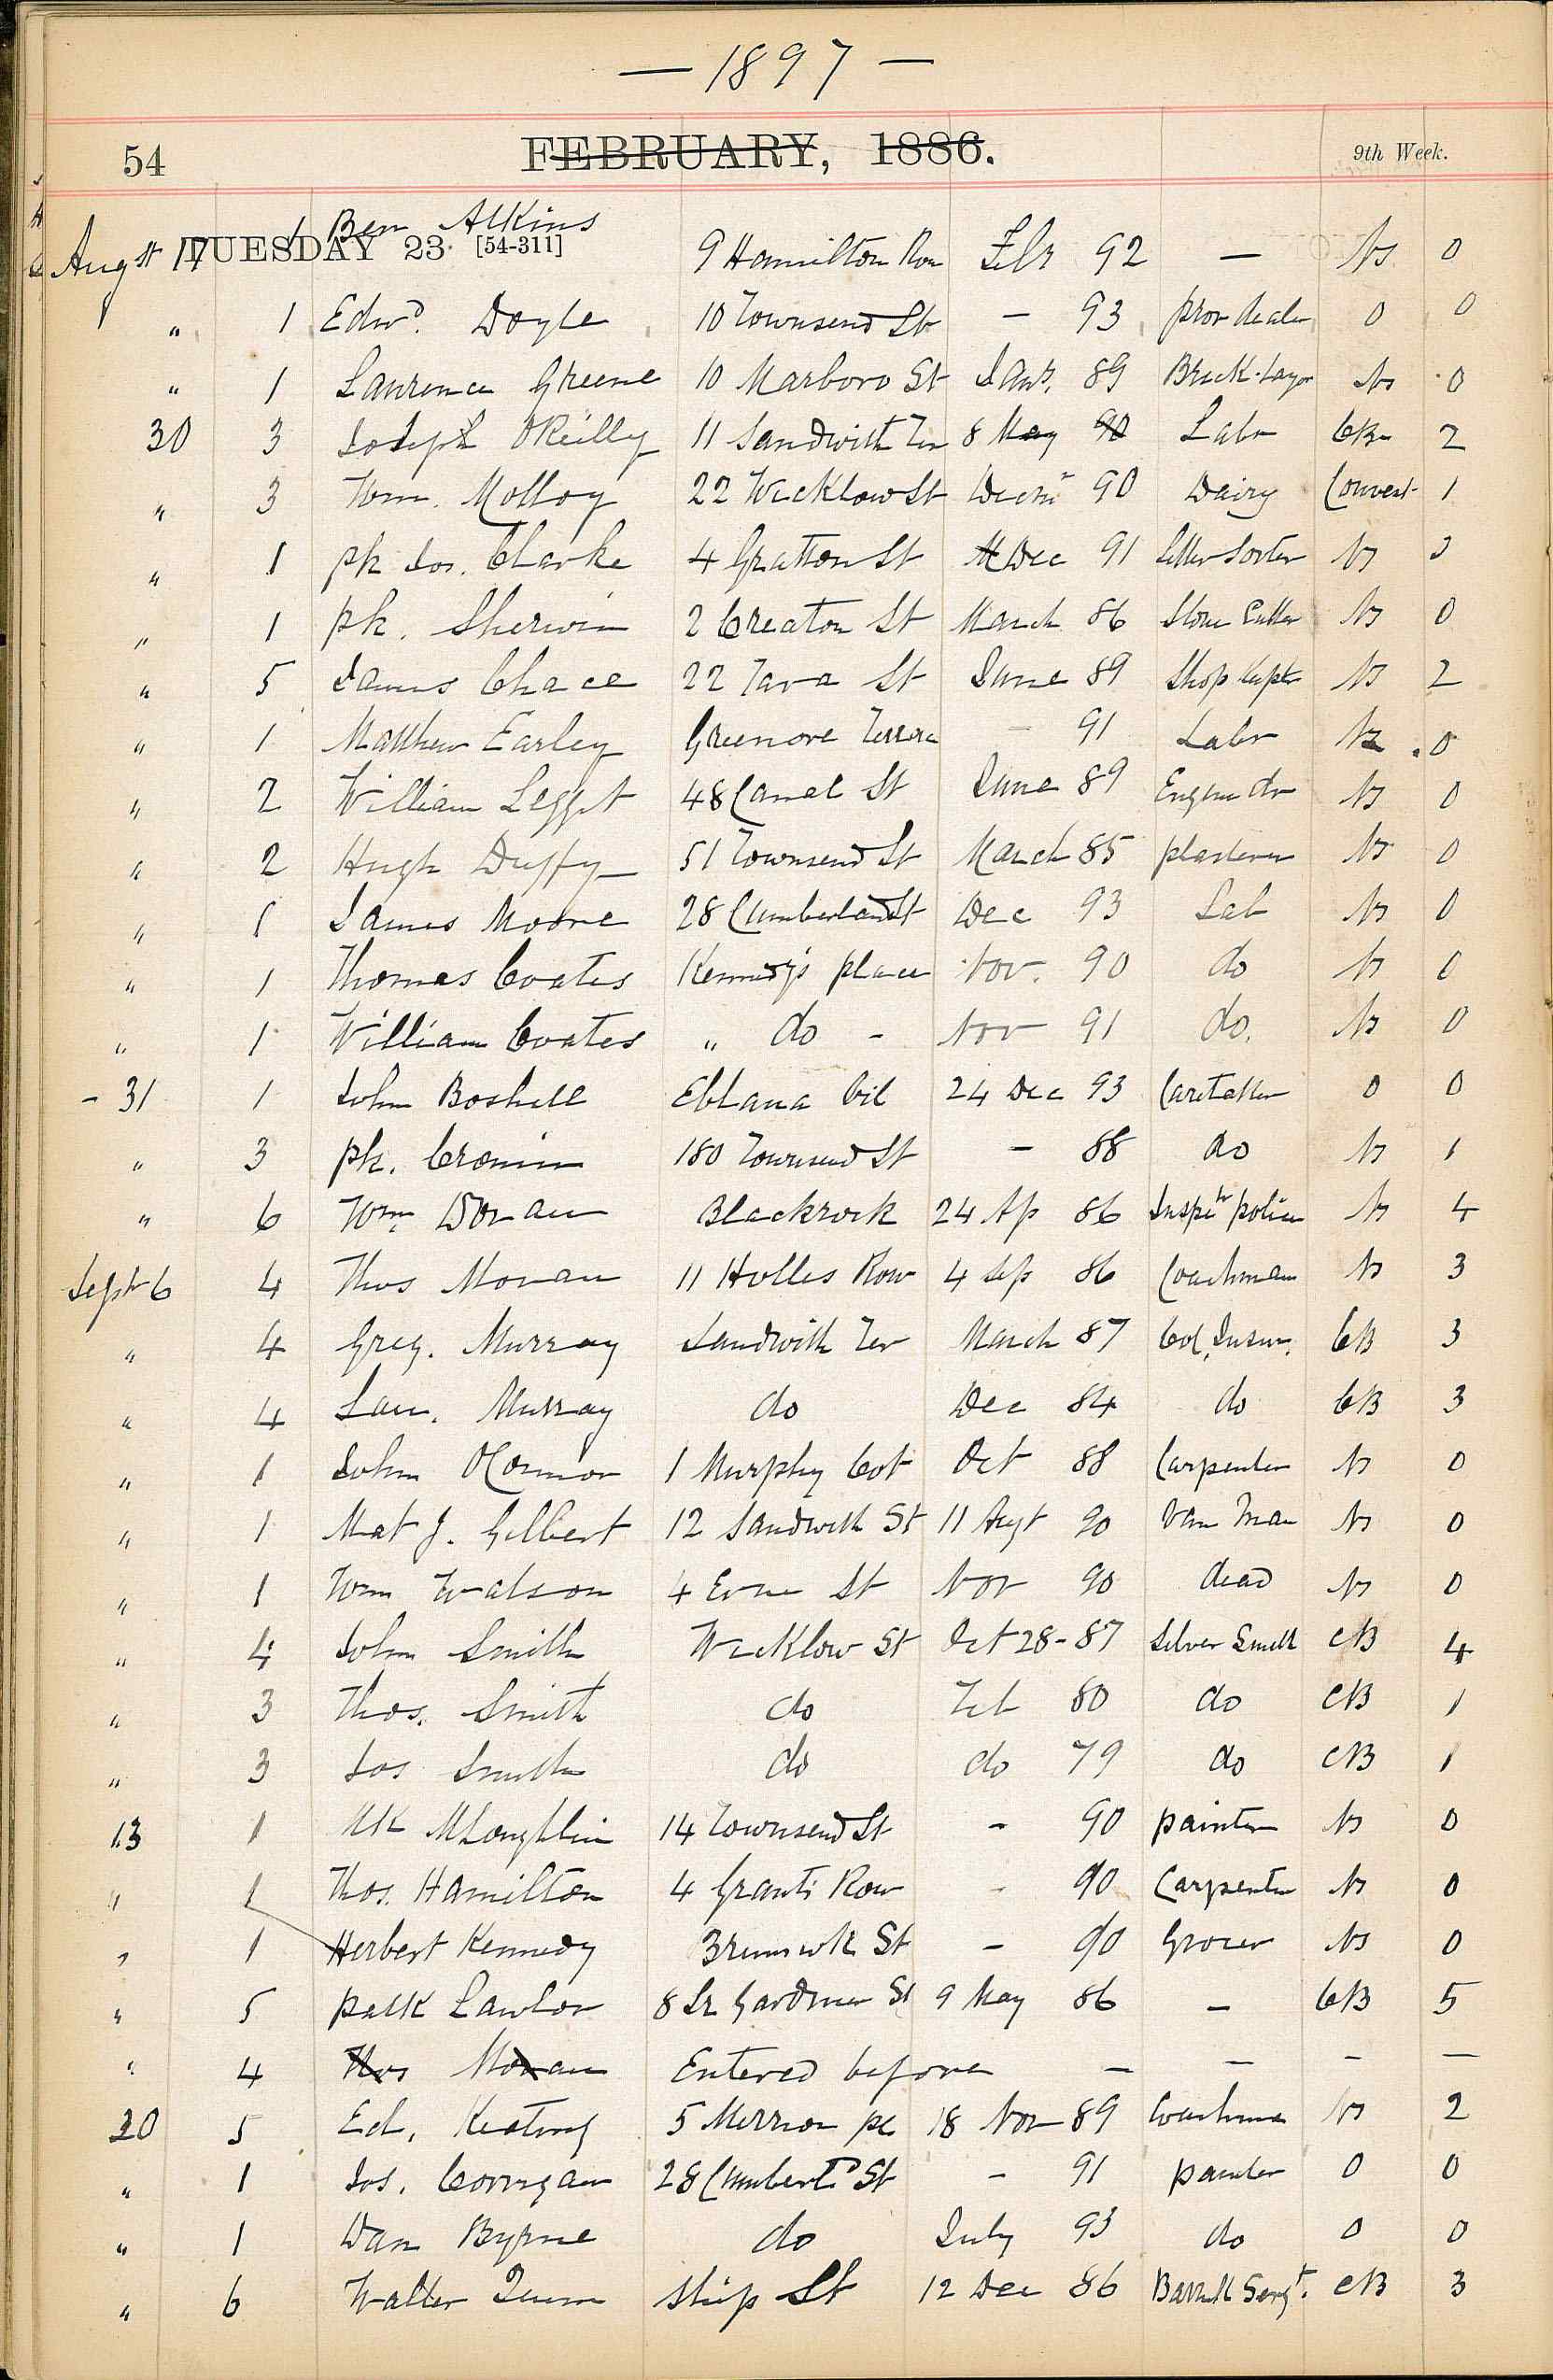 — 1897 —
54 FEBRUARY, 1886. 9th Week.
TUESDAY 23 [54-311]
Augst 17 1 Ben Atkins 9 Hamilton Row Feb 92 — Ns 0
" 1 Edwd. Doyle 10 Townsend St — 93 prov dealer 0 0
" 1 Laurence Greene 10 Marboro St Jany. 89 Brick-layer Ns 0
30 3 Joseph OReilly 11 Sandwith Ter 8 May 90 Labr 2
" 3 Wm. Molloy 22 Wicklow St Decmr 90 Dairy Convest 1
" 1 pk Jos. Clarke 4 Grattan St Dec 91 Letter Sorter Ns 3
" 1 pk. Sherwin 2 Creaton St March 86 Stone Cutter Ns 0
" 5 James Chace 22 Tara St June 89 Shop kepr Ns 2
" 1 Matthew Earley Greenore Terrace — 91 Labr Ns 0
" 2 William Leggit 48 Canal St June 89 Engine dr Ns 0
" 2 Hugh Duffy 51 Townsend St March 85 plasterer Ns 0
" 1 James Moore 28 Cumberland St Dec 93 Lab Ns 0
" 1 Thomas Coates Kennedy's place Nov. 90 do Ns 0
" 1 William Coates " do - Nov 91 do. Ns 0
- 31 1 John Boshell Eblana Vil 24 Dec 93 Caretaker 0 0
" 3 pk. Cronin 180 Townsend St — 88 do Ns 1
" 6 Wm Doran Blackrock 24 Ap 86 Inspctr police Ns 4
Sept 6 4 Thos Moran 11 Holles Row 4 Sep 86 Coachman Ns 3
" 4 Greg. Murray Sandwith Ter March 87 Col. Insur. CB 3
" 4 Lau. Murray do Dec 84 do CB 3
" 1 John OConnor 1 Murphy Cot Oct 88 Carpenter Ns 0
" 1 Mat J. Gilbert 12 Sandwith St 11 Augt 90 Van Man Ns 0
" 1 Wm Watson 4 Erne St Nov 90 dead Ns 0
" 4 John Smith Wicklow St Oct 28-87 Silver Smith CB 4
" 3 Thos. Smith do Feb 80 do CB 1
" 3 Jos Smith do do 79 do CB 1
13 1 Mk McLoughlin 14 Townsend St - 90 painter Ns 0
" 1 Thos. Hamilton 4 Grants Row - 90 Carpenter Ns 0
" 1 Herbert Kennedy Brunswk St — 90 Grocer Ns 0
" 5 Patk Lawlor 8 Lr Gardiner St 9 May 86 — CB 5
" 4 Thos Moran Entered before — — — —
20 5 Ed. Keating 5 Merrion pl 18 Nov 89 Coachman Ns 2
" 1 Jos. Corrigan 28 Cumberld St — 91 painter 0 0
" 1 Dan Byrne do July 93 do 0 0
" 6 Walter Quinn Ship St 12 Dec 86 Barrk Sergt. CB 3